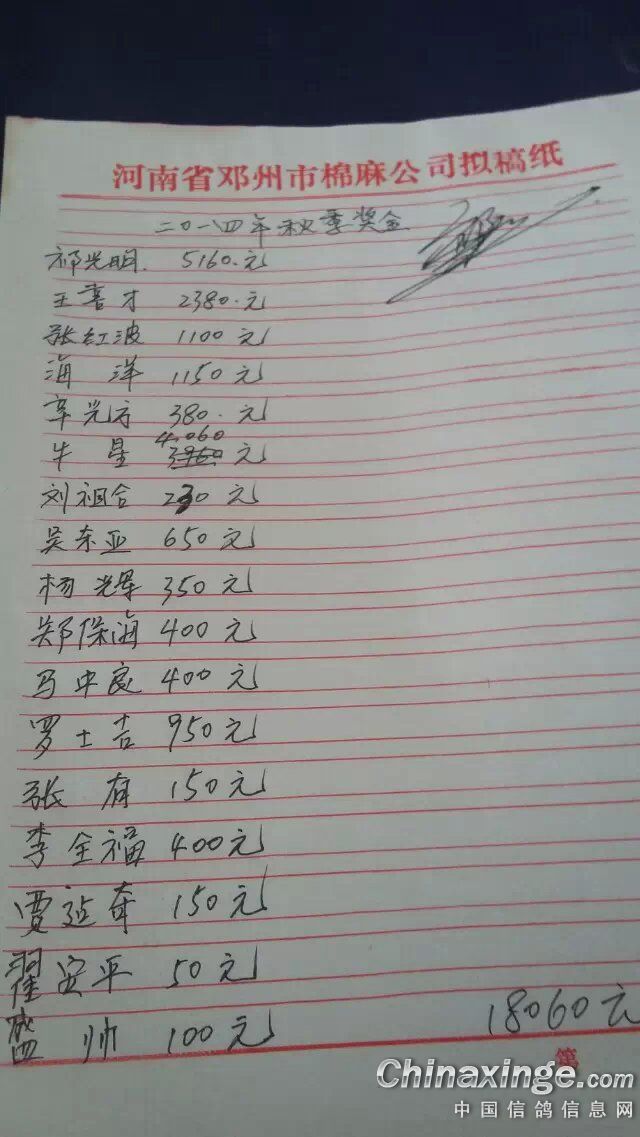 河南省邓州市棉麻公司拟稿纸
二〇一四年秋季奖金
祁光明. 5160.元
王喜才 2380.元
张红波 1100元
海洋 1150元
辛光方 380.元
4.060
牛星 3960元
刘祖合 230元
吴东亚 650元
杨辉 350元
郑保海 400元
马中良 400元
罗士吉 950元
张有 150元
李全福 400元
贾延奇 150元
翟安平 50元
盛帅 100元
18060元
第
Chinaxinge.com
中国信鸽信息网